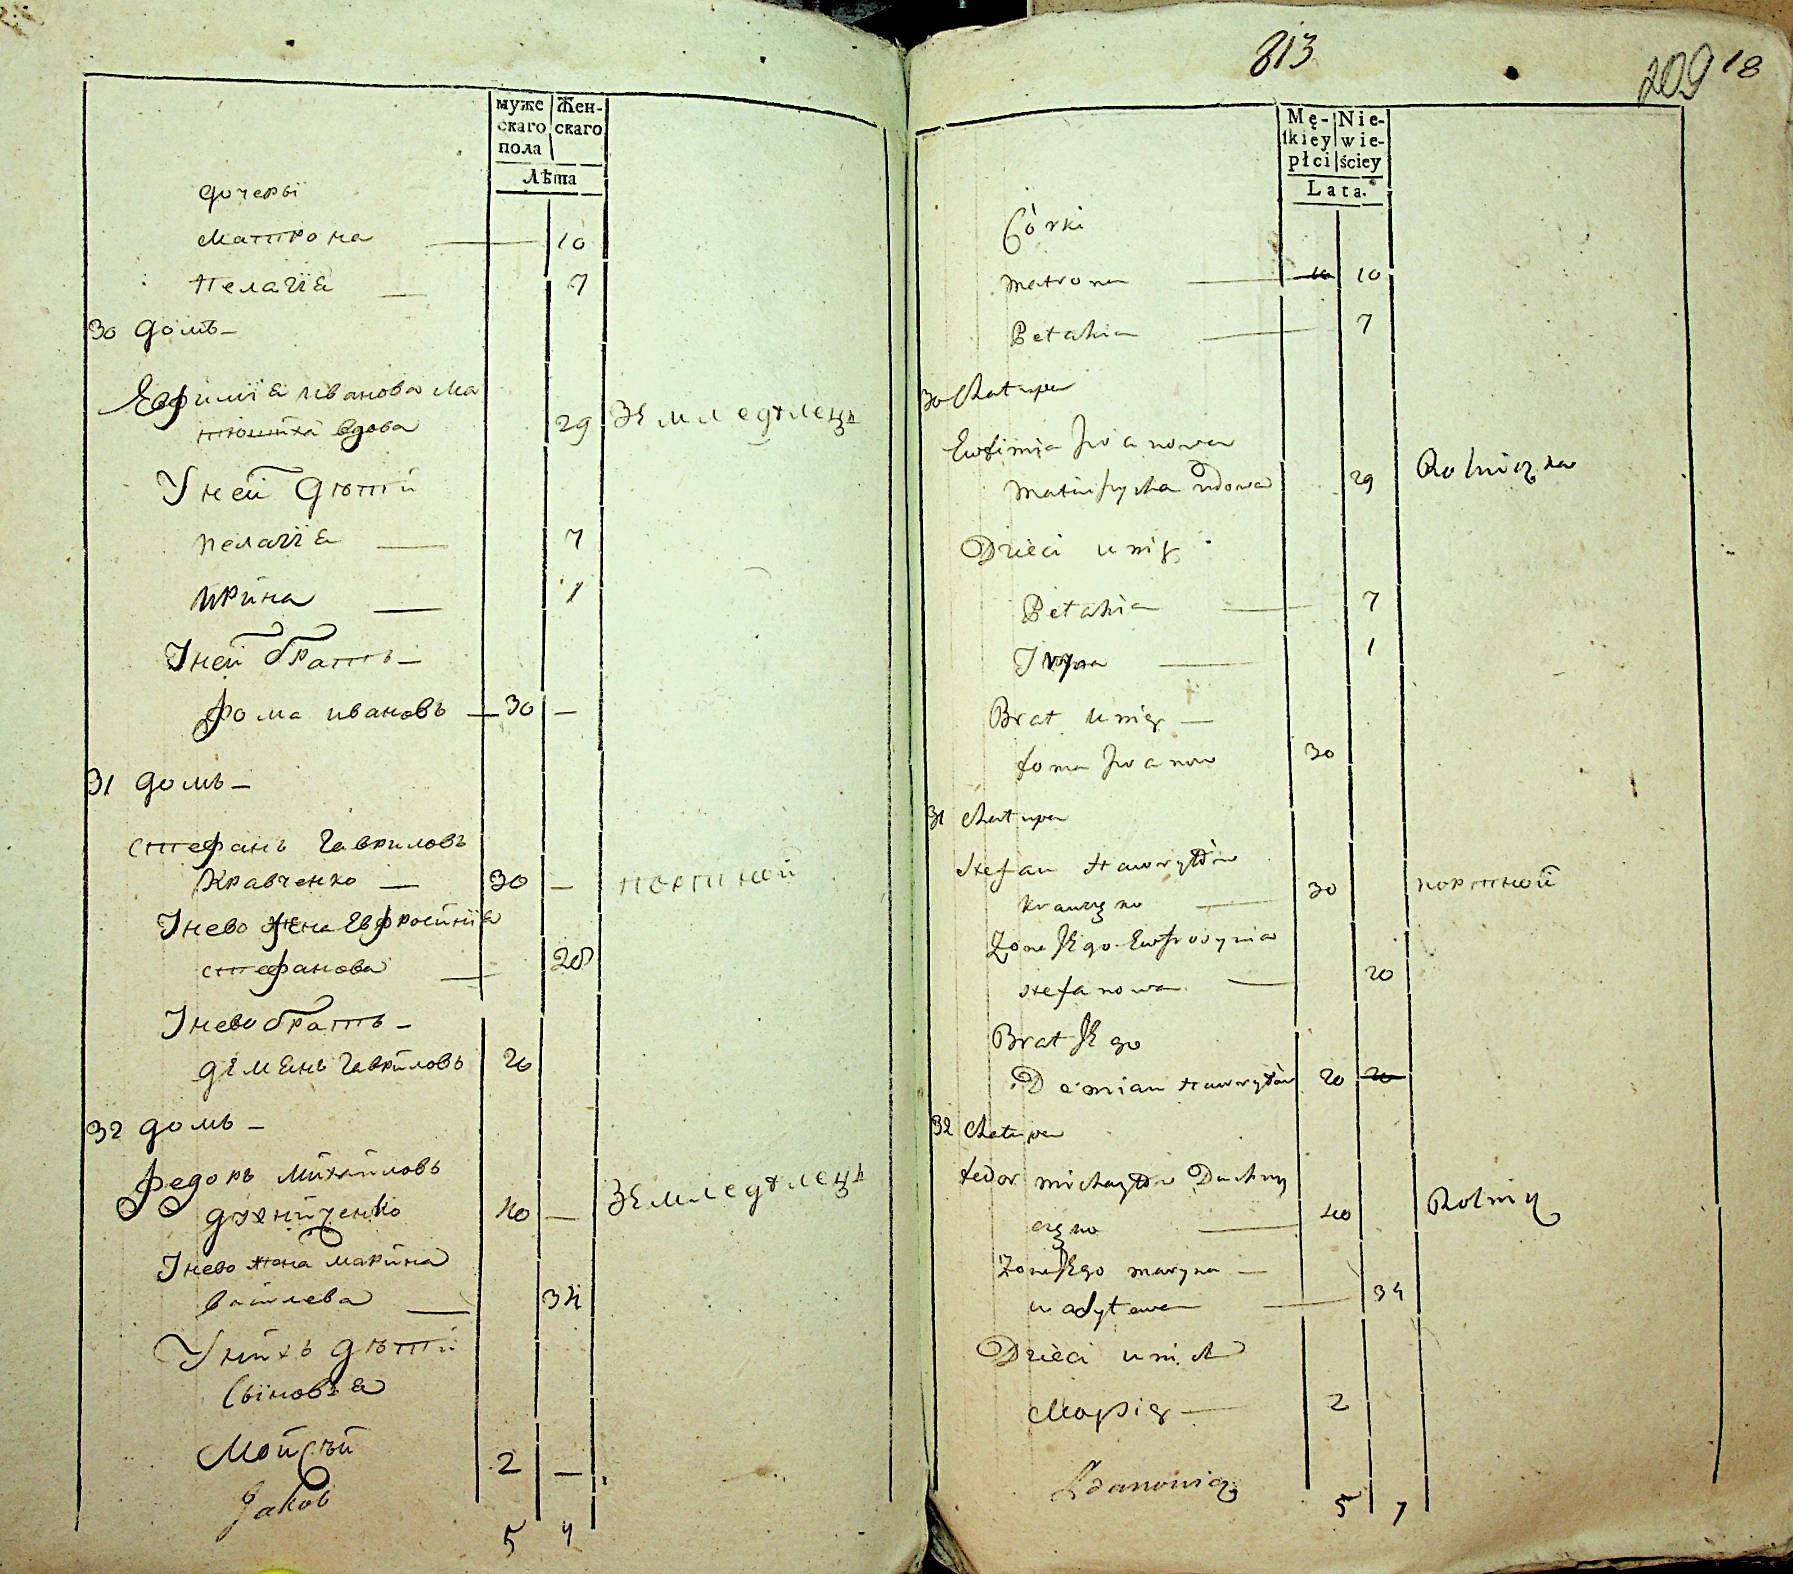 муже Жен-
скаго скаго
пола
Лѣта
дочеры
Матрона 10
Пелагїя 7
30 домъ —
Евфимїя Иванова Ма
тюшиха вдова 29 Земледѣлецъ
У ней дѣти
Пелагїя — 7
Ирина — 1
У ней братъ —
Фома Ивановъ — 30 —
31 домъ —
Стефанъ Гавриловъ
Кравченко — 30 — портной
У нево жена Евфросинїя
Стефанова — 20
У нево братъ —
Демянъ Гавриловъ 20
32 домъ —
Федоръ Михайловъ
Духниченко 40 — Земледѣлецъ
У нево жена Марина
— 34
У нихъ дѣти
Сыновья
Мойсѣй 2 —
Jakob
5 7
813
209 18
Mę- Nie-
ſkiey wie-
płci ściey
Lata.
Córki
Matrona — 10 10
Pelahia — 7
30 Chałupa
Ewfimia Jwanowa
Matiuszycha wdowa 29 Rolniczka
Dzieci u nię
Pelahia — 7
Iryna — 1
Brat u nię —
Foma Jwanow 30
31 Chałupa
Stefan Hawryłów
Krawczenko — 30 портной
Żona Jego Ewfrosynia
Stefanowa — 20
Brat Jego
Demian Hawryłów 20 20
32 Chałupa
Fedor Michayłów Duchny
częko — 40 Rolnik
Żona Jego Maryna —
— 34
Dzieci u nich
Moysię — 2
Zdanowicz
5 7